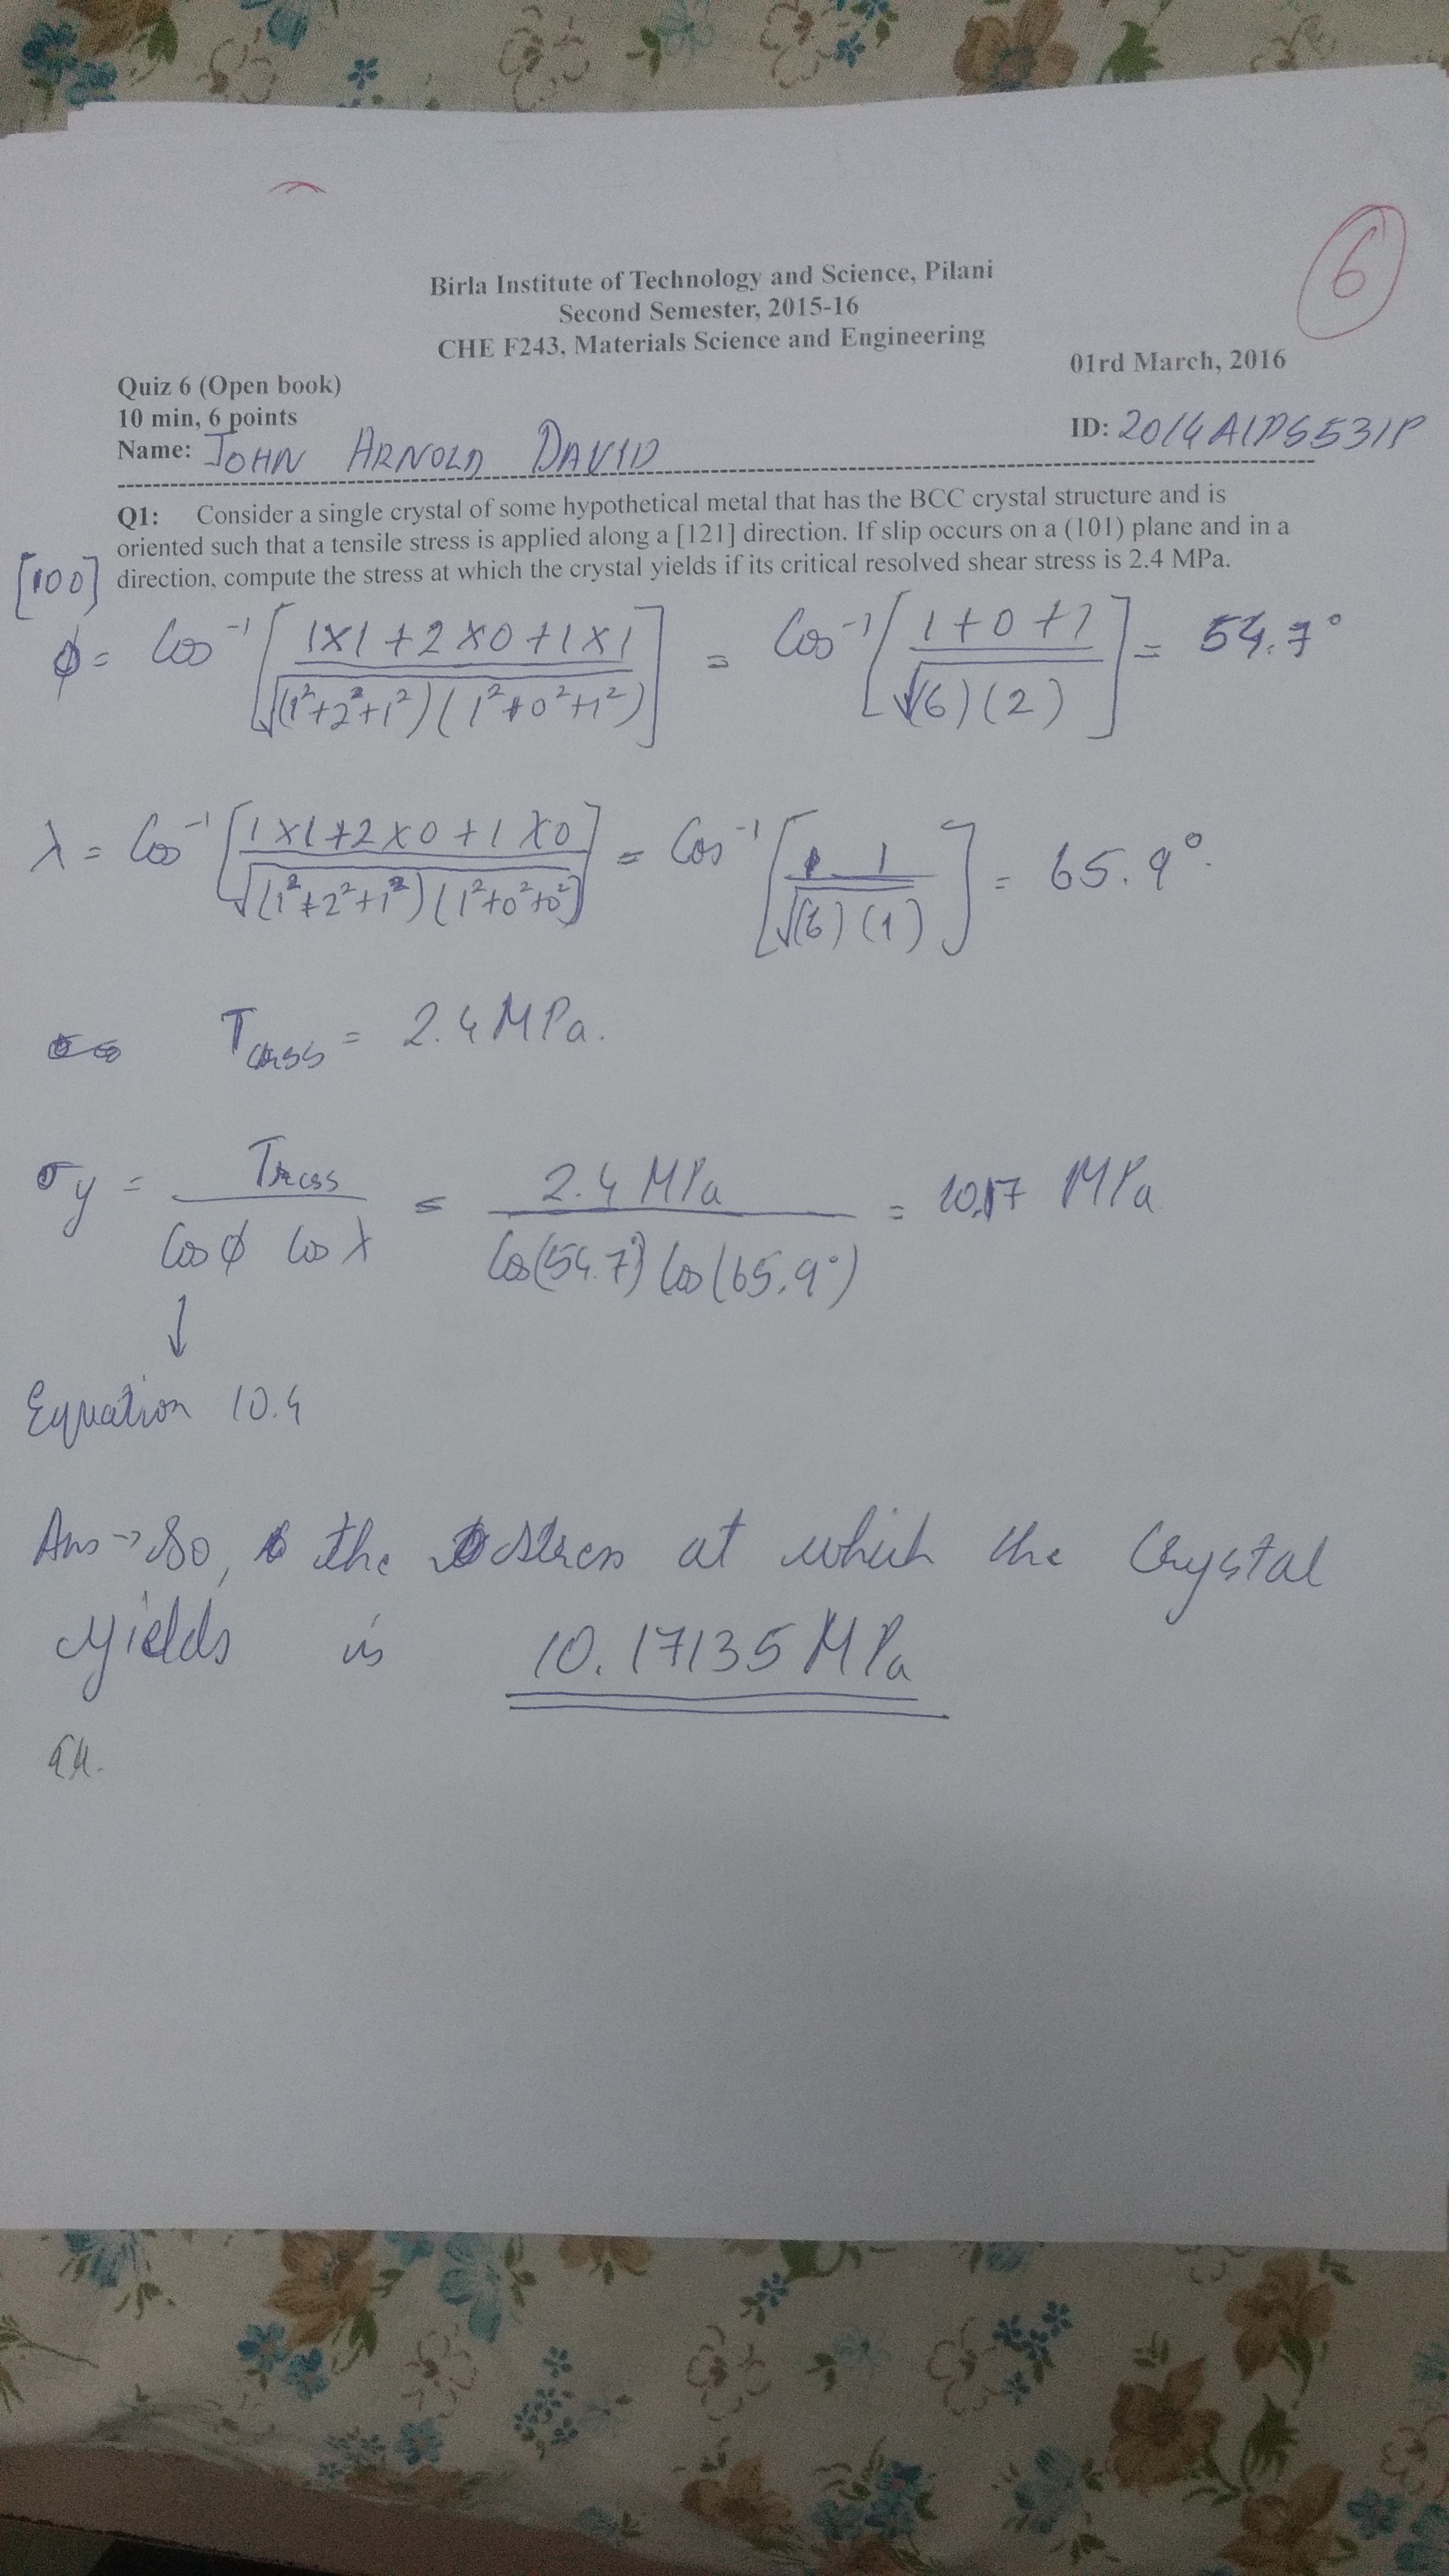 6
Birla Institute of Technology and Science, Pilani
Second Semester, 2015-16
CHE F243, Materials Science and Engineering
01rd March, 2016
Quiz 6 (Open book)
10 min, 6 points
Name: JOHN ARNOLD DAVID
ID: 2014A1PS531P
Q1: Consider a single crystal of some hypothetical metal that has the BCC crystal structure and is
oriented such that a tensile stress is applied along a [121] direction. If slip occurs on a (101) plane and in a
[100] direction, compute the stress at which the crystal yields if its critical resolved shear stress is 2.4 MPa.
ϕ = Cos⁻¹[(1×1+2×0+1×1)/√((1²+2²+1²)(1²+0²+1²))] = Cos⁻¹[(1+0+1)/√(6)(2)] = 54.7°
λ = Cos⁻¹[(1×1+2×0+1×0)/√((1²+2²+1²)(1²+0²+0²))] = Cos⁻¹[1/√(6)(1)] = 65.9°.
Tcrss = 2.4 MPa.
σy = Trcss/(Cosϕ Cosλ) = 2.4 MPa/(Cos(54.7°) Cos(65.9°)) = 10.17 MPa
↓
Equation 10.4
Ans → So, the stress at which the Crystal
yields is 10.17135 MPa